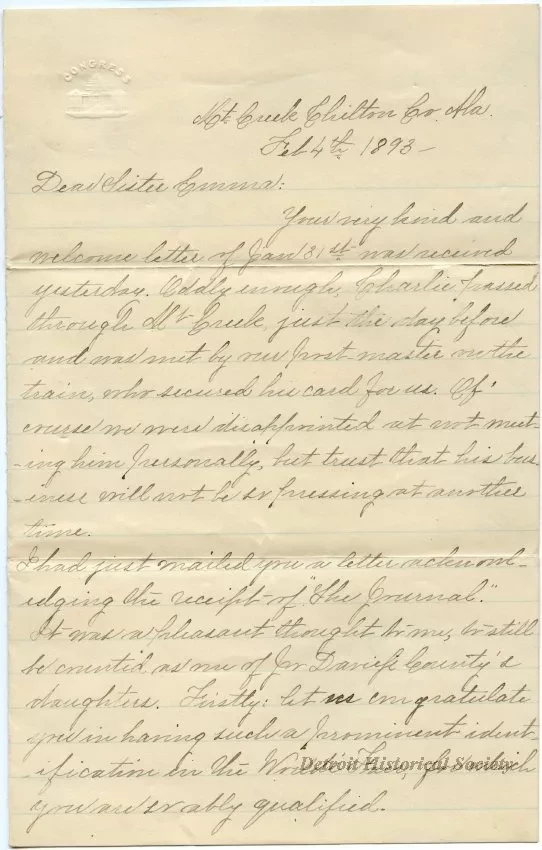 CONGRESS
Mt. Creek Chilton Co. Ala.
Feb 4th 1893 -
Dear Sister Emma:
Your very kind and
welcome letter of Jan 31st was received
yesterday. Oddly enough, Charlie passed
through Mt Creek, just the day before
and was met by our post master on the
train, who secured his card for us. Of
course we were disappointed at not meet-
-ing him personally, but trust that his bus-
-iness will not be so pressing at another
time.
I had just mailed you a letter acknowl-
edging the receipt of "The Journal".
It was a pleasant thought to me, to still
be counted as one of Jo Daviess County's
daughters. Firstly: let us congratulate
you in having such a prominent ident-
-ification in the World's Fair, for which
you are so ably qualified.
Detroit Historical Society